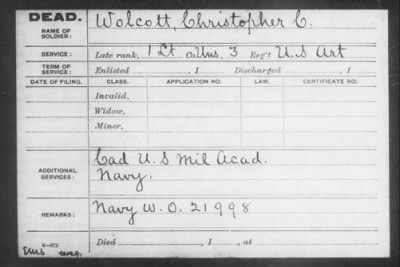 DEAD.
NAME OF SOLDIER:
Wolcott, Christopher C.
SERVICE:
Late rank, 1 Lt Co. Uns, 3 Reg't U.S Art
TERM OF SERVICE:
Enlisted , 1 Discharged , 1
DATE OF FILING. CLASS. APPLICATION NO. LAW. CERTIFICATE NO.
Invalid,
Widow,
Minor,
ADDITIONAL SERVICES:
Cad U.S Mil Acad.
Navy.
REMARKS:
Navy W.O. 21998
Died , 1 , at